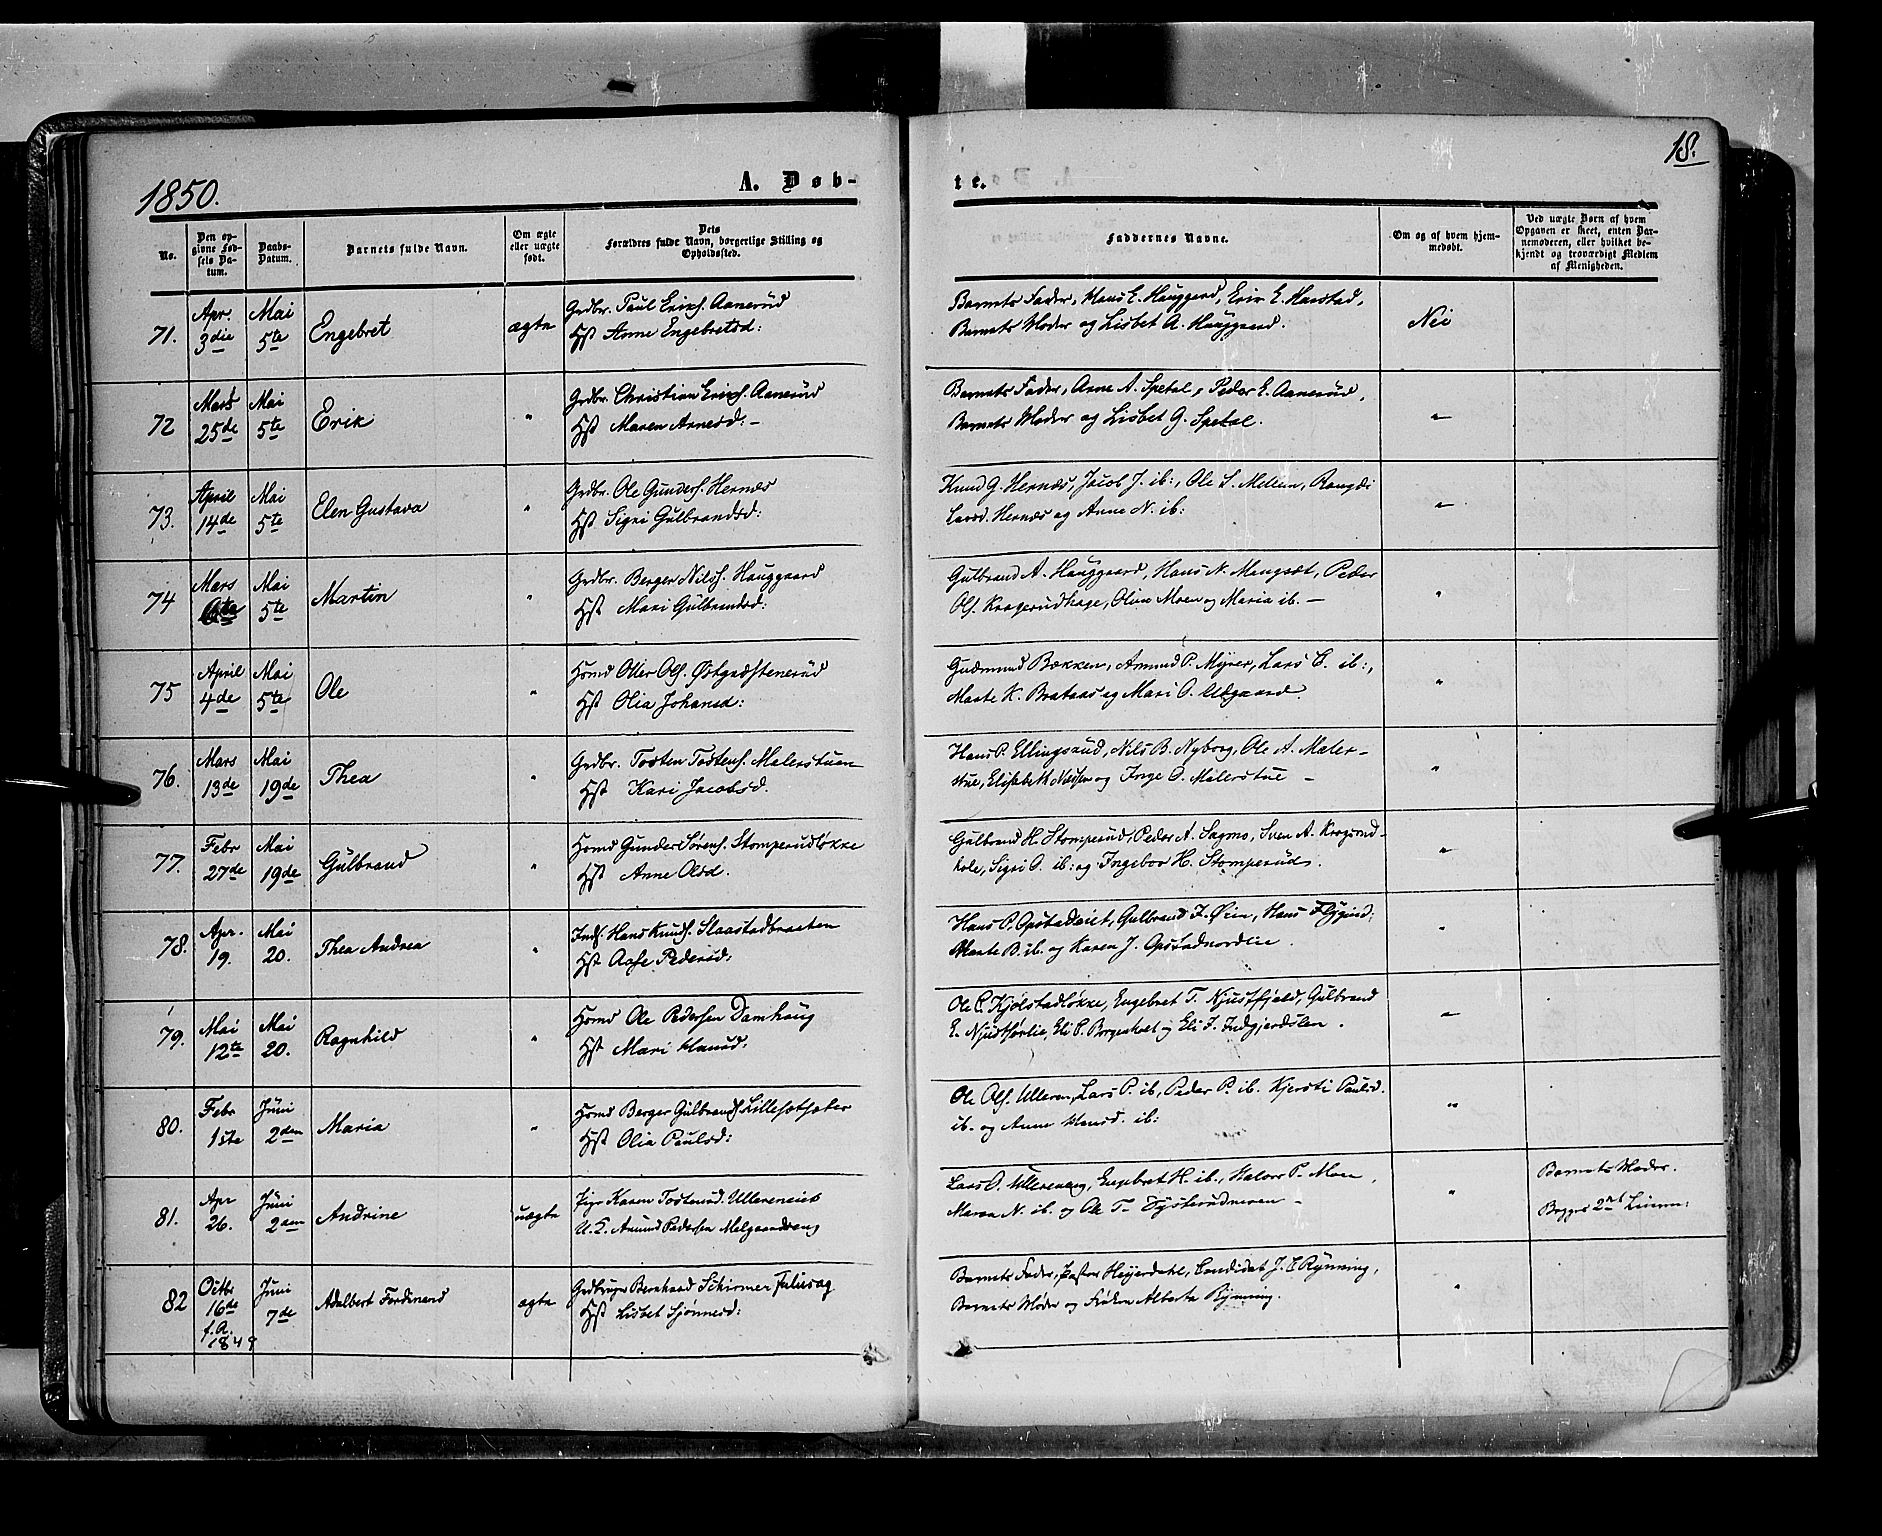 1850.
A. Døb-
te.
18.
No.
Den op-
givne Fød-
sels Da-
tum.
Daabs-
Datum.
Barnets fulde Navn.
Om ægte
eller uægte
født.
Dets
Forældres fulde Navn, borgerlige Stilling og
Opholdssted.
Faddernes Navne.
Om og af hvem hjem-
medøbt.
Ved uægte Børn af hvem
Opgaven er skeet, enten Bar-
nemoderen, eller hvilket be-
kjendt og troværdigt Medlem
af Menigheden.
71. Apr. 3die Mai 5te Engebret ægte
Grdbr. Paul Erichs. Aanerud
Hst Anne Engebretsd:
Barnets Fader, Hans E. Hauggard, Erik E. Harstad,
Barnets Moder og Lisbet A. Hauggaard.
Nei
72 Mars 25de Mai 5te Erik "
Grdbr. Christian Erichs. Aanerud
Hst Maren Arnesd: -
Barnets Fader, Arne A. Spetal, Peder E. Aanerud,
Barnets Moder og Lisbet G. Spetal.
"
73. April 14de Mai 5te Elen Gustava "
Grdbr. Ole Gunders. Hernæs
Hst Sigri Gulbrandsd:
Knud G. Hernæs, Jacob J. ib:, Ole S. Melum,
Larsd. Hernæs og Anne N. ib:
"
74 Mars Mai 5te Martin "
Grdbr. Berger Nilss. Hauggaard
Hst Mari Gulbrandsd:
Gulbrand A. Hauggaard, Hans N. Mengset, Peder
Ols. Kragerudhage, Oline Moen og Maria ib. -
"
75 April 4de Mai 5te Ole "
Hsmd Ols. Østgaardstenerud
Hst Olia Johansd:
Gudmund Bækken, Amund P. Myrer, Lars C. ib:,
Marte K. Brataas og Mari O.
"
76. Mars 13de Mai 19de Thea "
Grdbr. Tosten Tostens. Malerstuen
Hst Kari Jacobsd.
Hans P. Ellingsrud, Nils B. Nyborg, Ole A. Maler-
stue, Elisabeth og Inge O. Malerstue -
"
77. Febr 27de Mai 19de Gulbrand "
Hsmd Gunder Sørens. Stomperudløkke
Hst Anne Olsd.
Gulbrand H. Stomperud, Peder A. Sagmo, Sven A. Kragerud-
hole, Sigri O. ib: og Ingebor H. Stomperud.
"
78. Apr. 19. Mai 20. Thea Andrea "
Inds. Hans Knuds. Slaastadbraaten
Hst Aase Pedersd:
Hans P. Opstadeiet, Gulbrand J. Øien, Hans
Marte B. ib. og Karen J. Opstadnordlie.
"
79. Mai 12te Mai 20. Ragnhild "
Hsmd Ole Pedersen Damhaug
Hst Mari Hansd:
Ole P. Kjølstadløkke, Engebret T. Njustfjeld, Gulbrand
E. Njustforlie, Eli P. Borgenholt og Eli J. Indgjerdslen.
"
80. Febr 1ste Juni 2den Maria "
Hsmd Berger Gulbrands. Lillesætsæter
Hst Olia Paulsd:
Ole Ols. Ulleren, Lars P. ib, Peder P. ib. Kjersti Paulsd.
ib. og Anne Hansd. ib:
"
81. Apr 26. Juni 2den Andrine uægte
Pige Karen Tostensd. Ullereneiet
U. K. Amund Pedersen Melgaardseng
Lars O. Ullereneng, Engebret H. ib., Halvor P. Moen,
Maren N. ib. og Ole T. -
"
Barnets Moder.
Begges 2net Leierm:
82 Octbr 16de f. A. 1849 Juni 7de Adelbert Ferdinand ægte
Grdbruger Bernhard Schirmer Juliusag
Hst Lisbet Sjønnesd:
Barnets Fader, Pastor Heyerdahl, Candidat J. C. Rynning,
Barnets Moder og Frøken Alberta Rynning.
"